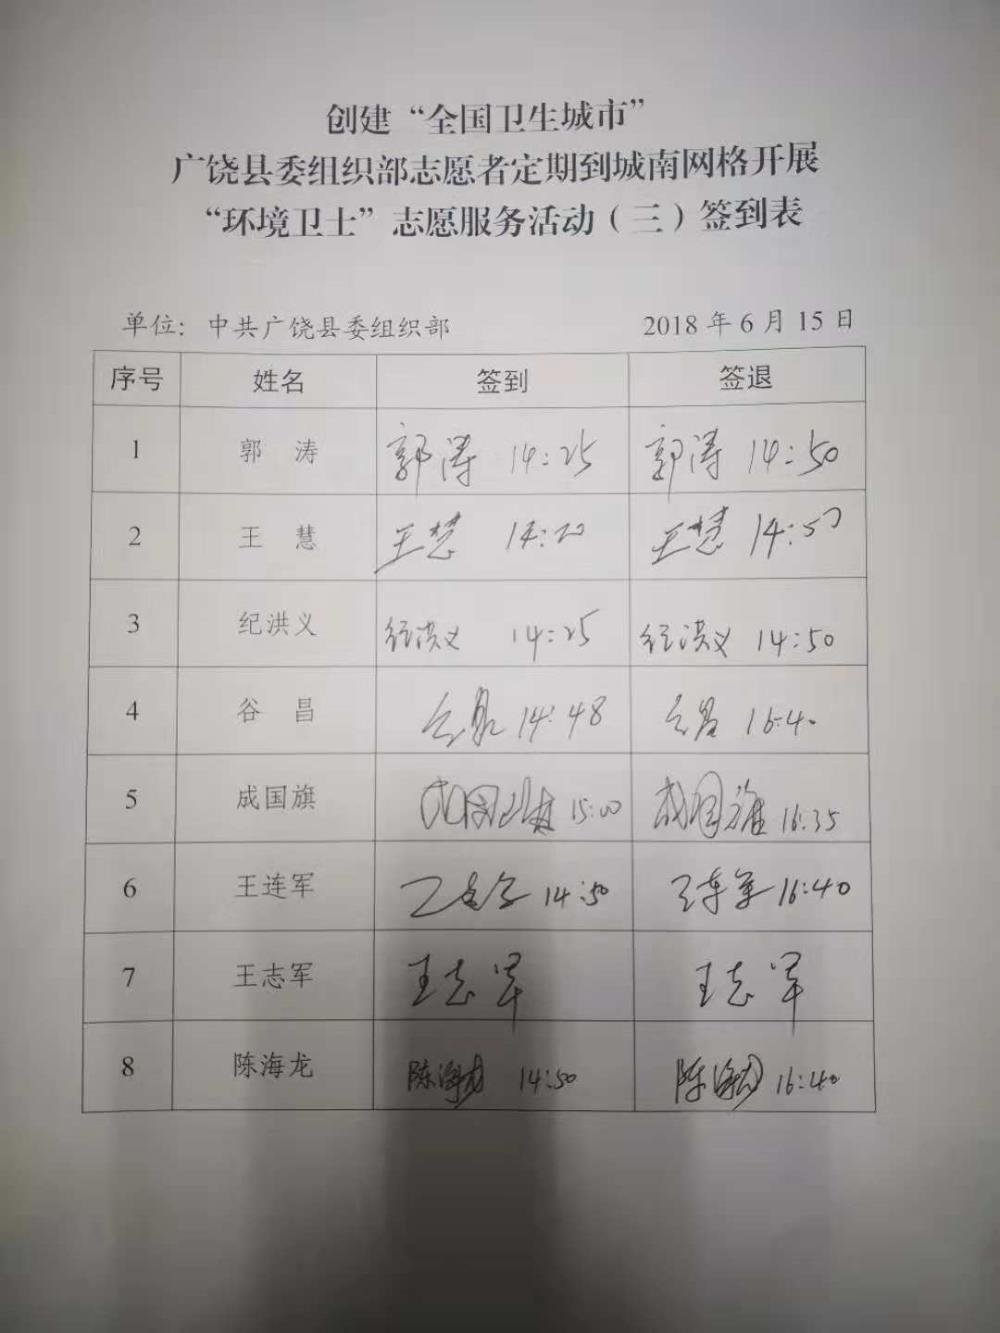 创建“全国卫生城市”
广饶县委组织部志愿者定期到城南网格开展
“环境卫士”志愿服务活动（三）签到表
单位：中共广饶县委组织部 2018年6月15日
序号 姓名 签到 签退
1 郭涛 郭涛 14:25 郭涛 14:50
2 王慧 王慧 14:20 王慧 14:50
3 纪洪义 纪洪义 14:25 纪洪义 14:50
4 谷昌 谷昌 14:48 谷昌 16:40
5 成国旗 成国旗 15:00 成国旗 16:35
6 王连军 王连军 14:50 王连军 16:40
7 王志军 王志军 王志军
8 陈海龙 陈海龙 14:50 陈海龙 16:40